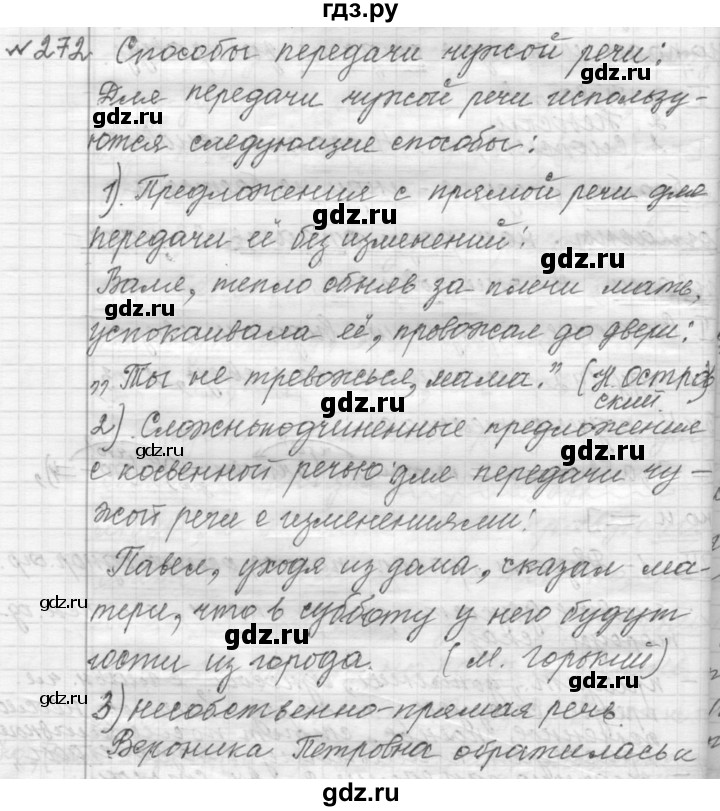 гдз.ру
№272 Способы передачи чужой речи:
gdz.ru
Для передачи чужой речи использу-
gdz.ru
ются следующие способы:
1). Предложения с прямой речи для
gdz.ru
передачи её без изменений:
gdz.ru
Валя, тепло обняв за плечи мать,
gdz.ru
успокаивала её, провожая до двери:
„Ты не тревожься, мама." (Н. Остров
ский.
gdz.ru
2). Сложноподчиненные предложения
gdz.ru
с косвенной речью: для передачи чу-
gdz.ru
жой речи с изменениями:
Павел, уходя из дома, сказал ма-
gdz.ru
тери, что в субботу у него будут
gdz.ru
гости из города. (М. Горький)
gdz.ru
gdz.ru
3) несобственно-прямая речь.
Вероника Петровна обратилась к
gdz.ru